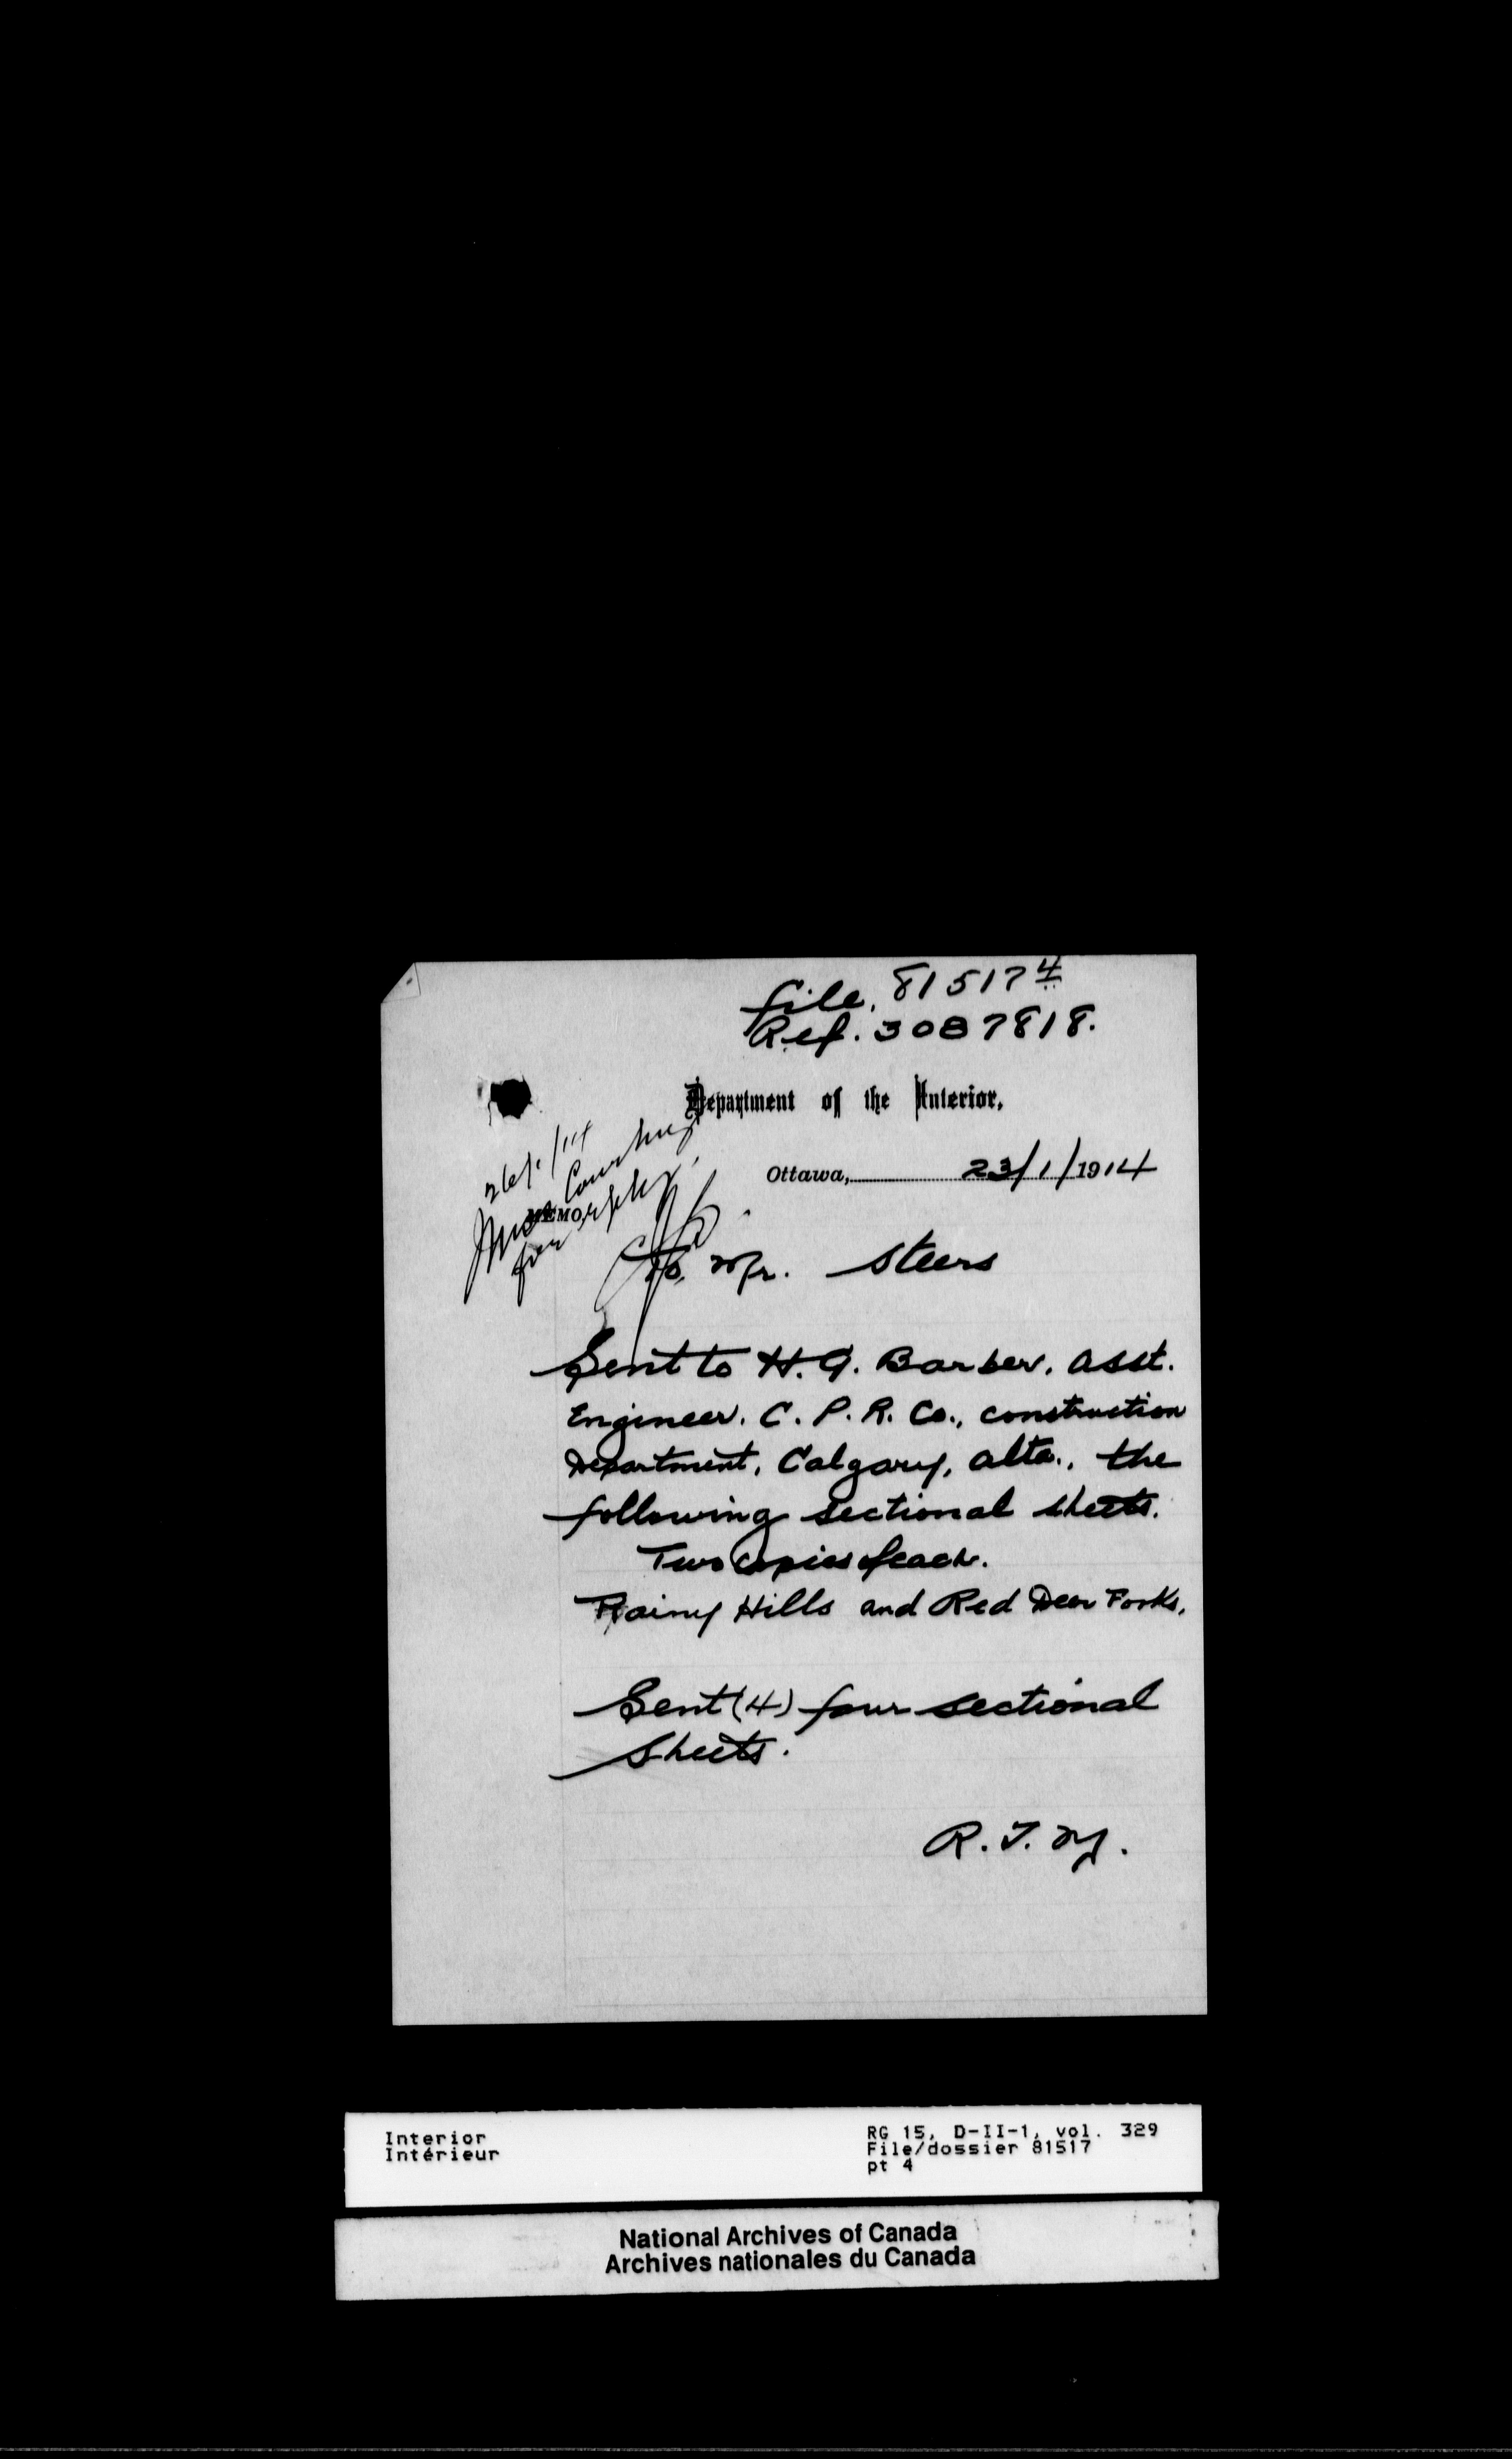 file. 81517 4
Ref. 3087818.
Department of the Interior,
Ottawa, 23/1/1914
26/1/14
Miss Courtney
MEMO.
for reply.
To, Mr. Steers
Sent to H. G. Barber, asst.
Engineer. C. P. R. Co., construction
Department, Calgary, alta., the
following sectional sheets.
Two copies of each.
Rainy Hills and Red Deer Forks.
Sent (4) four sectional
sheets.
R. T. M.
Interior
Intérieur
RG 15, D-II-1, vol. 329
File/dossier 81517
pt 4
National Archives of Canada
Archives nationales du Canada